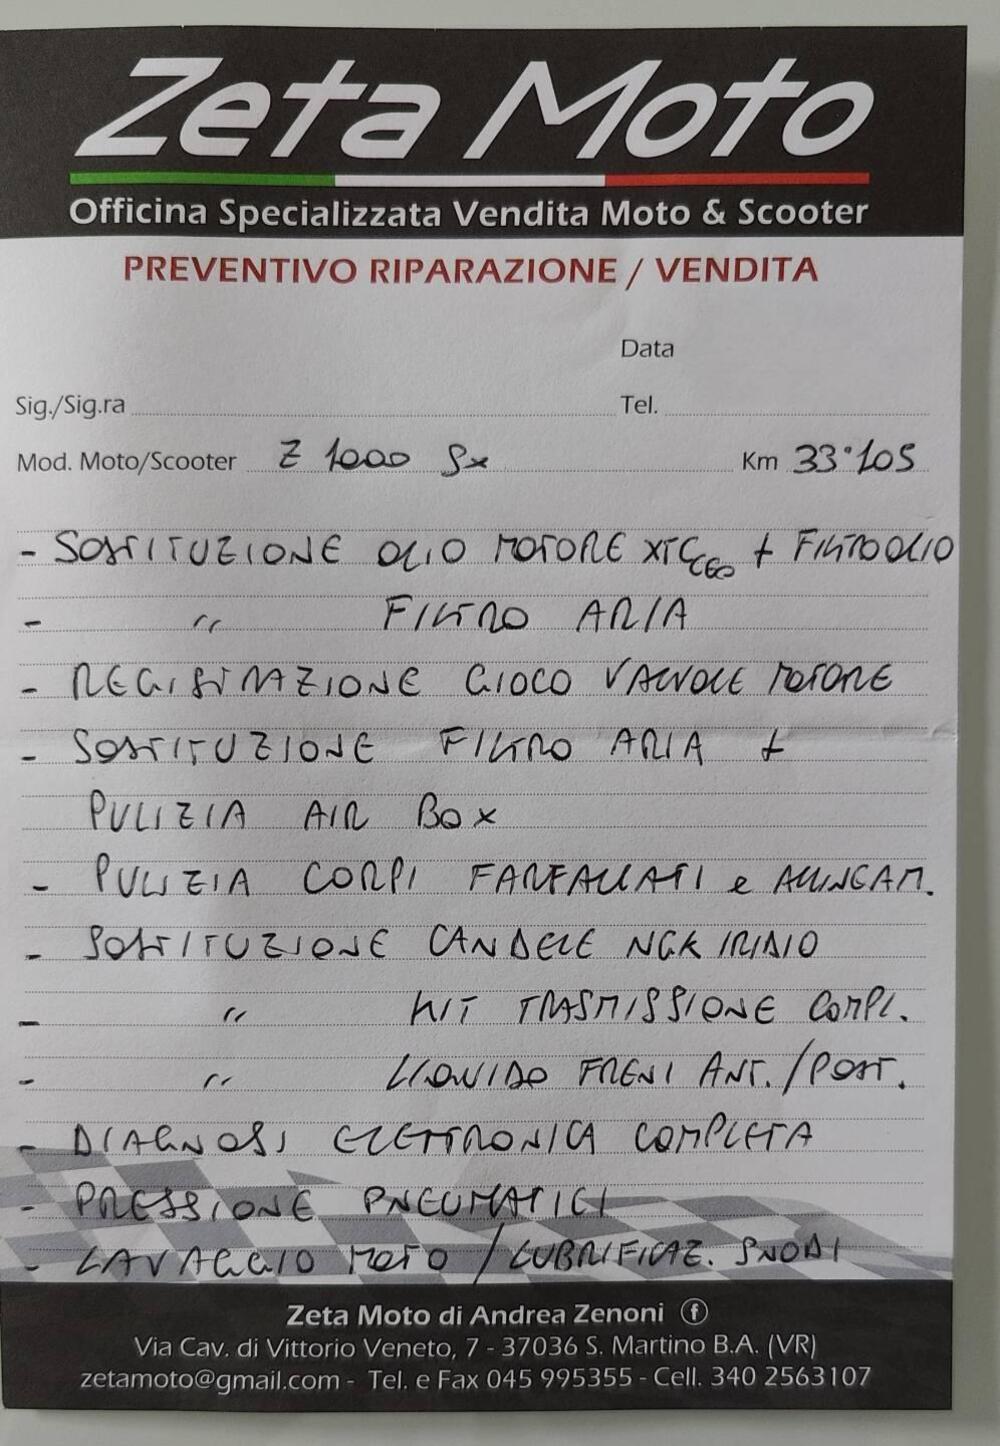 Zeta Moto
Officina Specializzata Vendita Moto & Scooter
PREVENTIVO RIPARAZIONE / VENDITA
Data
Sig./Sig.ra Tel.
Mod. Moto/Scooter Z 1000 Sx Km 33°105
- SOSTITUZIONE OLIO MOTORE XTC C60 + FILTRO OLIO
- " FILTRO ARIA
- REGISTRAZIONE GIOCO VALVOLE MOTORE
- SOSTITUZIONE FILTRO ARIA +
PULIZIA AIR BOX
- PULIZIA CORPI FARFALLATI e ALLINEAM.
- SOSTITUZIONE CANDELE NGK IRIDIO
- " KIT TRASMISSIONE COMPL.
- " LIQUIDO FRENI ANT. / POST.
- DIAGNOSI ELETTRONICA COMPLETA
- PRESSIONE PNEUMATICI
- LAVAGGIO MOTO / LUBRIFICAZ. SNODI
Zeta Moto di Andrea Zenoni f
Via Cav. di Vittorio Veneto, 7 - 37036 S. Martino B.A. (VR)
zetamoto@gmail.com - Tel. e Fax 045 995355 - Cell. 340 2563107